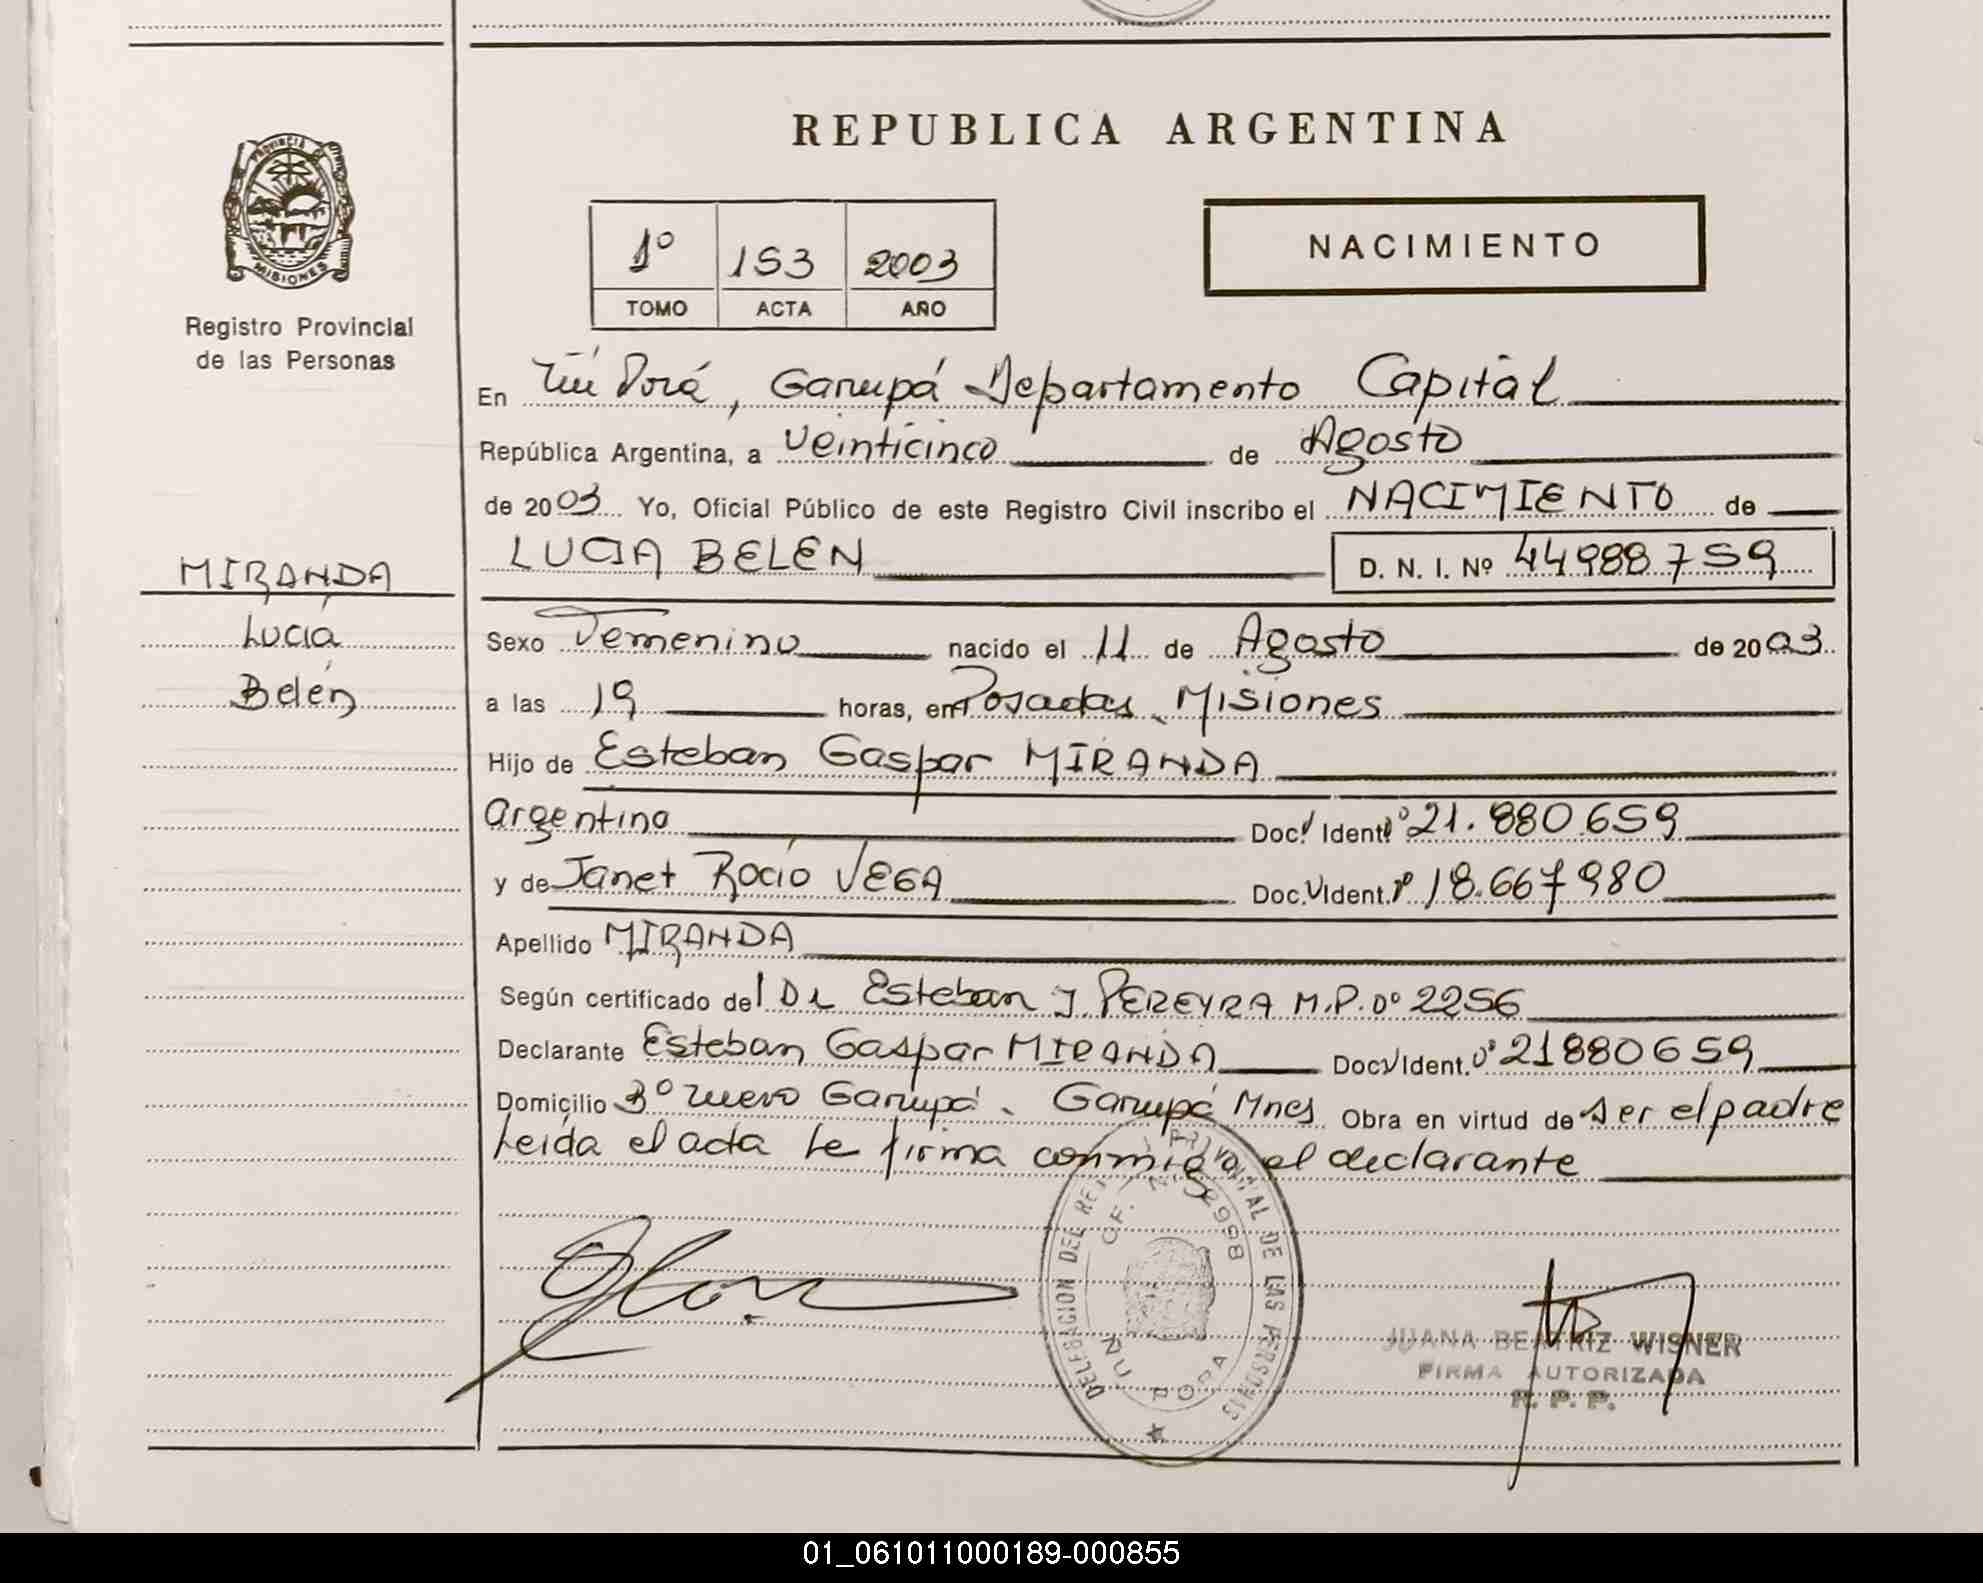 PROVINCIA DE
MISIONES
Registro Provincial
de las Personas
MIRANDA
Lucía
Belén
REPUBLICA ARGENTINA
1º 153 2003
TOMO ACTA AÑO
NACIMIENTO
En Ñu Porá, Garupá Departamento Capital
República Argentina, a veinticinco de Agosto
de 2003 Yo, Oficial Público de este Registro Civil inscribo el NACIMIENTO de
LUCIA BELEN D. N. I. Nº 44988759
Sexo Femenino nacido el 11 de Agosto de 2003
a las 19 horas, en Posadas, Misiones
Hijo de Esteban Gaspar MIRANDA
argentino Doc. Ident. nº 21.880.659
y de Janet Rocío VEGA Doc. Ident. nº 18.667980
Apellido MIRANDA
Según certificado del Dr Esteban J PEREYRA M.P. nº 2256
Declarante Esteban Gaspar MIRANDA Doc. Ident. nº 21880659
Domicilio Bº nuevo Garupá, Garupá Mnes Obra en virtud de ser el padre
Leída el acta la firma conmigo el declarante
DELEGACION DEL REG. PROVINCIAL DE LAS PERSONAS
OF. N. 2998
ÑU PORA
JUANA BEATRIZ WISNER
FIRMA AUTORIZADA
R. P. P.
01_061011000189-000855